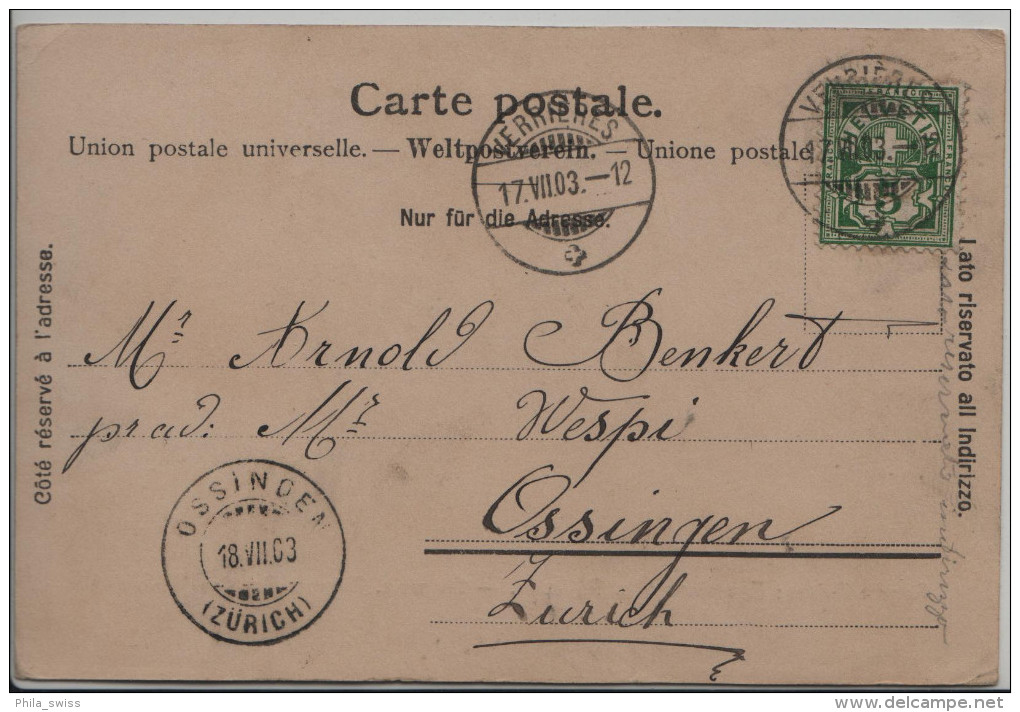 Carte postale.
Union postale universelle. — Weltpostverein. — Unione postale
Nur für die Adresse.
VERRIÈRES
17.VII.03.—12
VERRIÈRES
HELVETIA
FRANCO
5
VII.03.—
Côté réservé à l'adresse.
Lato riservato all Indirizzo.
Mr Arnold Benkert
prad: Mr Wespi
Ossingen
Zurich
OSSINGEN
18.VII.03
(ZÜRICH)
Phila_swiss
delcampe.net